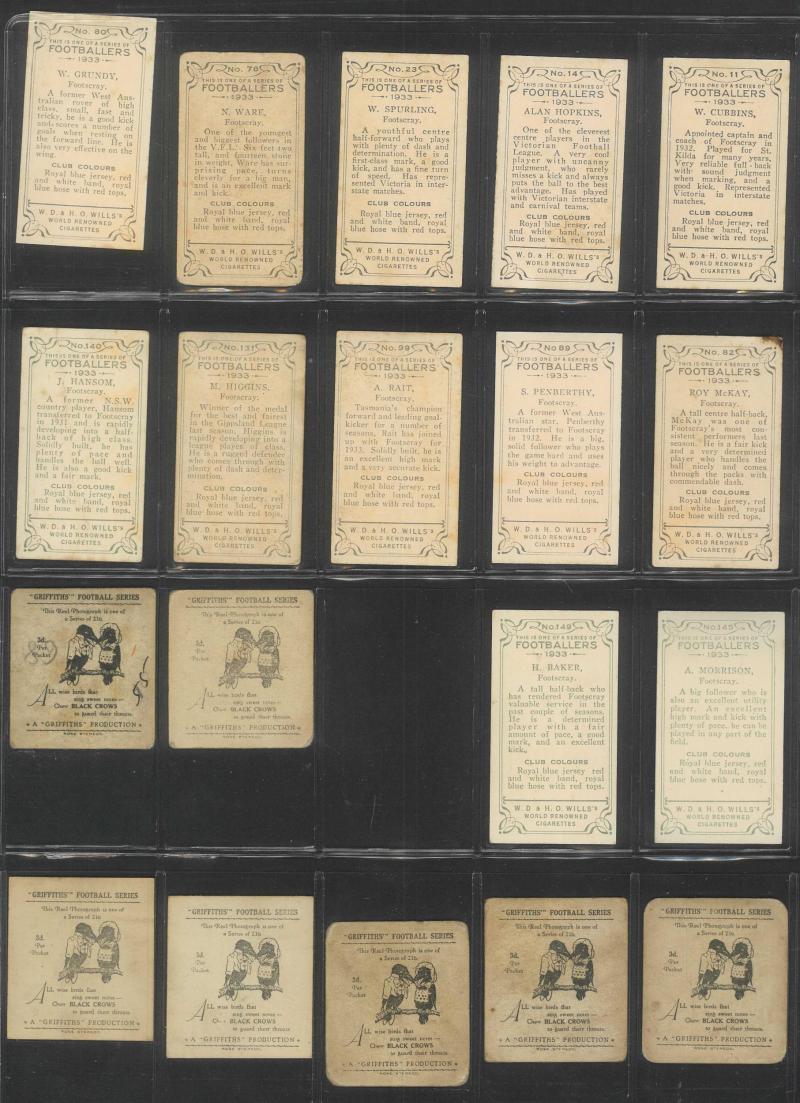 No. 80
THIS IS ONE OF A SERIES OF
FOOTBALLERS
1933
W. GRUNDY,
Footscray.
A former West Aus-
tralian rover of high
class, small, fast and
tricky, he is a good kick
and scores a number of
goals when resting on
the forward line. He is
also very effective on the
wing.
CLUB COLOURS
Royal blue jersey, red
and white band, royal
blue hose with red tops.
W. D. & H. O. WILLS's
WORLD RENOWNED
CIGARETTES
No. 76
THIS IS ONE OF A SERIES OF
FOOTBALLERS
1933
N. WARE,
Footscray.
One of the youngest
and biggest followers in
the V.F.L. Six feet two
tall, and fourteen stone
in weight, Ware has sur-
prising pace, turns
cleverly for a big man,
and is an excellent mark
and kick.
CLUB COLOURS
Royal blue jersey, red
and white band, royal
blue hose with red tops.
W. D. & H. O. WILLS's
WORLD RENOWNED
CIGARETTES
No. 23
THIS IS ONE OF A SERIES OF
FOOTBALLERS
1933
W. SPURLING,
Footscray.
A youthful centre
half-forward who plays
with plenty of dash and
determination. He is a
first-class mark, a good
kick, and has a fine turn
of speed. Has repre-
sented Victoria in inter-
state matches.
CLUB COLOURS
Royal blue jersey, red
and white band, royal
blue hose with red tops.
W. D. & H. O. WILLS's
WORLD RENOWNED
CIGARETTES
No. 14
THIS IS ONE OF A SERIES OF
FOOTBALLERS
1933
ALAN HOPKINS,
Footscray.
One of the cleverest
centre players in the
Victorian Football
League. A very cool
player with uncanny
judgment, who rarely
misses a kick and always
puts the ball to the best
advantage. Has played
with Victorian interstate
and carnival teams.
CLUB COLOURS
Royal blue jersey, red
and white band, royal
blue hose with red tops.
W. D. & H. O. WILLS's
WORLD RENOWNED
CIGARETTES
No. 11
THIS IS ONE OF A SERIES OF
FOOTBALLERS
1933
W. CUBBINS,
Footscray.
Appointed captain and
coach of Footscray in
1932. Played for St.
Kilda for many years.
Very reliable full-back
with sound judgment
when marking, and a
good kick. Represented
Victoria in interstate
matches.
CLUB COLOURS
Royal blue jersey, red
and white band, royal
blue hose with red tops.
W. D. & H. O. WILLS's
WORLD RENOWNED
CIGARETTES
No. 140
THIS IS ONE OF A SERIES OF
FOOTBALLERS
1933
J. HANSOM,
Footscray.
A former N.S.W.
country player, Hansom
transferred to Footscray
in 1931 and is rapidly
developing into a half-
back of high class.
Solidly built, he has
plenty of pace and
handles the ball well.
He is also a good kick
and a fair mark.
CLUB COLOURS
Royal blue jersey, red
and white band, royal
blue hose with red tops.
W. D. & H. O. WILLS's
WORLD RENOWNED
CIGARETTES
No. 131
THIS IS ONE OF A SERIES OF
FOOTBALLERS
1933
M. HIGGINS,
Footscray.
Winner of the medal
for the best and fairest
in the Gippsland League
last season, Higgins is
rapidly developing into a
league player of class.
He is a rugged defender
who comes through with
plenty of dash and deter-
mination.
CLUB COLOURS
Royal blue jersey, red
and white band, royal
blue hose with red tops.
W. D. & H. O. WILLS's
WORLD RENOWNED
CIGARETTES
No. 99
THIS IS ONE OF A SERIES OF
FOOTBALLERS
1933
A. RAIT,
Footscray.
Tasmania's champion
forward and leading goal-
kicker for a number of
seasons, Rait has joined
up with Footscray for
1933. Solidly built, he is
an excellent high mark
and a very accurate kick.
CLUB COLOURS
Royal blue jersey, red
and white band, royal
blue hose with red tops.
W. D. & H. O. WILLS's
WORLD RENOWNED
CIGARETTES
No 89
THIS IS ONE OF A SERIES OF
FOOTBALLERS
1933
S. PENBERTHY,
Footscray.
A former West Aus-
tralian star, Penberthy
transferred to Footscray in
1932. He is a big,
solid follower who plays
the game hard and uses
his weight to advantage.
CLUB COLOURS
Royal blue jersey, red
and white band, royal
blue hose with red tops.
W. D. & H. O. WILLS's
WORLD RENOWNED
CIGARETTES
No. 82
THIS IS ONE OF A SERIES OF
FOOTBALLERS
1933
ROY McKAY,
Footscray.
A tall centre half-back,
McKay was one of
Footscray's most con-
sistent performers last
season. He is a fair kick
and a very determined
player who handles the
ball nicely and comes
through the packs with
commendable dash.
CLUB COLOURS
Royal blue jersey, red
and white band, royal
blue hose with red tops.
W. D. & H. O. WILLS's
WORLD RENOWNED
CIGARETTES
"GRIFFITHS" FOOTBALL SERIES
This Real Photograph is one of
a Series of 216.
3d.
Per
Packet
ALL wise birds that
sing sweet notes—
Chew BLACK CROWS
to guard their throats.
A "GRIFFITHS" PRODUCTION
ROSS STEREOS.
"GRIFFITHS" FOOTBALL SERIES
This Real Photograph is one of
a Series of 216.
3d.
Per
Packet
ALL wise birds that
sing sweet notes—
Chew BLACK CROWS
to guard their throats.
A "GRIFFITHS" PRODUCTION
No. 149
THIS IS ONE OF A SERIES OF
FOOTBALLERS
1933
H. BAKER,
Footscray.
A tall half-back who
has rendered Footscray
valuable service in the
past couple of seasons.
He is a determined
player with a fair
amount of pace, a good
mark, and an excellent
kick.
CLUB COLOURS
Royal blue jersey red
and white band, royal
blue hose with red tops.
W. D. & H. O. WILLS's
WORLD RENOWNED
CIGARETTES
No. 145
THIS IS ONE OF A SERIES OF
FOOTBALLERS
1933
A. MORRISON,
Footscray.
A big follower who is
also an excellent utility
player. An excellent
high mark and kick with
plenty of pace. he can be
played in any part of the
field.
CLUB COLOURS
Royal blue jersey, red
and white band, royal
blue hose with red tops.
W. D. & H. O. WILLS's
WORLD RENOWNED
CIGARETTES
"GRIFFITHS" FOOTBALL SERIES
This Real Photograph is one of
a Series of 216.
3d.
Per
Packet
ALL wise birds that
sing sweet notes—
Chew BLACK CROWS
to guard their throats.
A "GRIFFITHS" PRODUCTION
"GRIFFITHS" FOOTBALL SERIES
This Real Photograph is one of
a Series of 216.
3d.
Per
Packet
ALL wise birds that
sing sweet notes—
BLACK CROWS
to guard their throats.
A "GRIFFITHS" PRODUCTION
"GRIFFITHS" FOOTBALL SERIES
This Real Photograph is one of
a Series of 216.
3d.
Per
Packet
ALL wise birds that
sing sweet notes—
Chew BLACK CROWS
to guard their throats.
A "GRIFFITHS" PRODUCTION
"GRIFFITHS" FOOTBALL SERIES
This Real Photograph is one of
a Series of 216.
3d.
Per
Packet
ALL wise birds that
sing sweet notes—
Chew BLACK CROWS
to guard their throats.
A "GRIFFITHS" PRODUCTION
"GRIFFITHS" FOOTBALL SERIES
This Real Photograph is one of
a Series of 216.
3d.
Per
Packet
ALL wise birds that
sing sweet notes—
Chew BLACK CROWS
to guard their throats.
A "GRIFFITHS" PRODUCTION